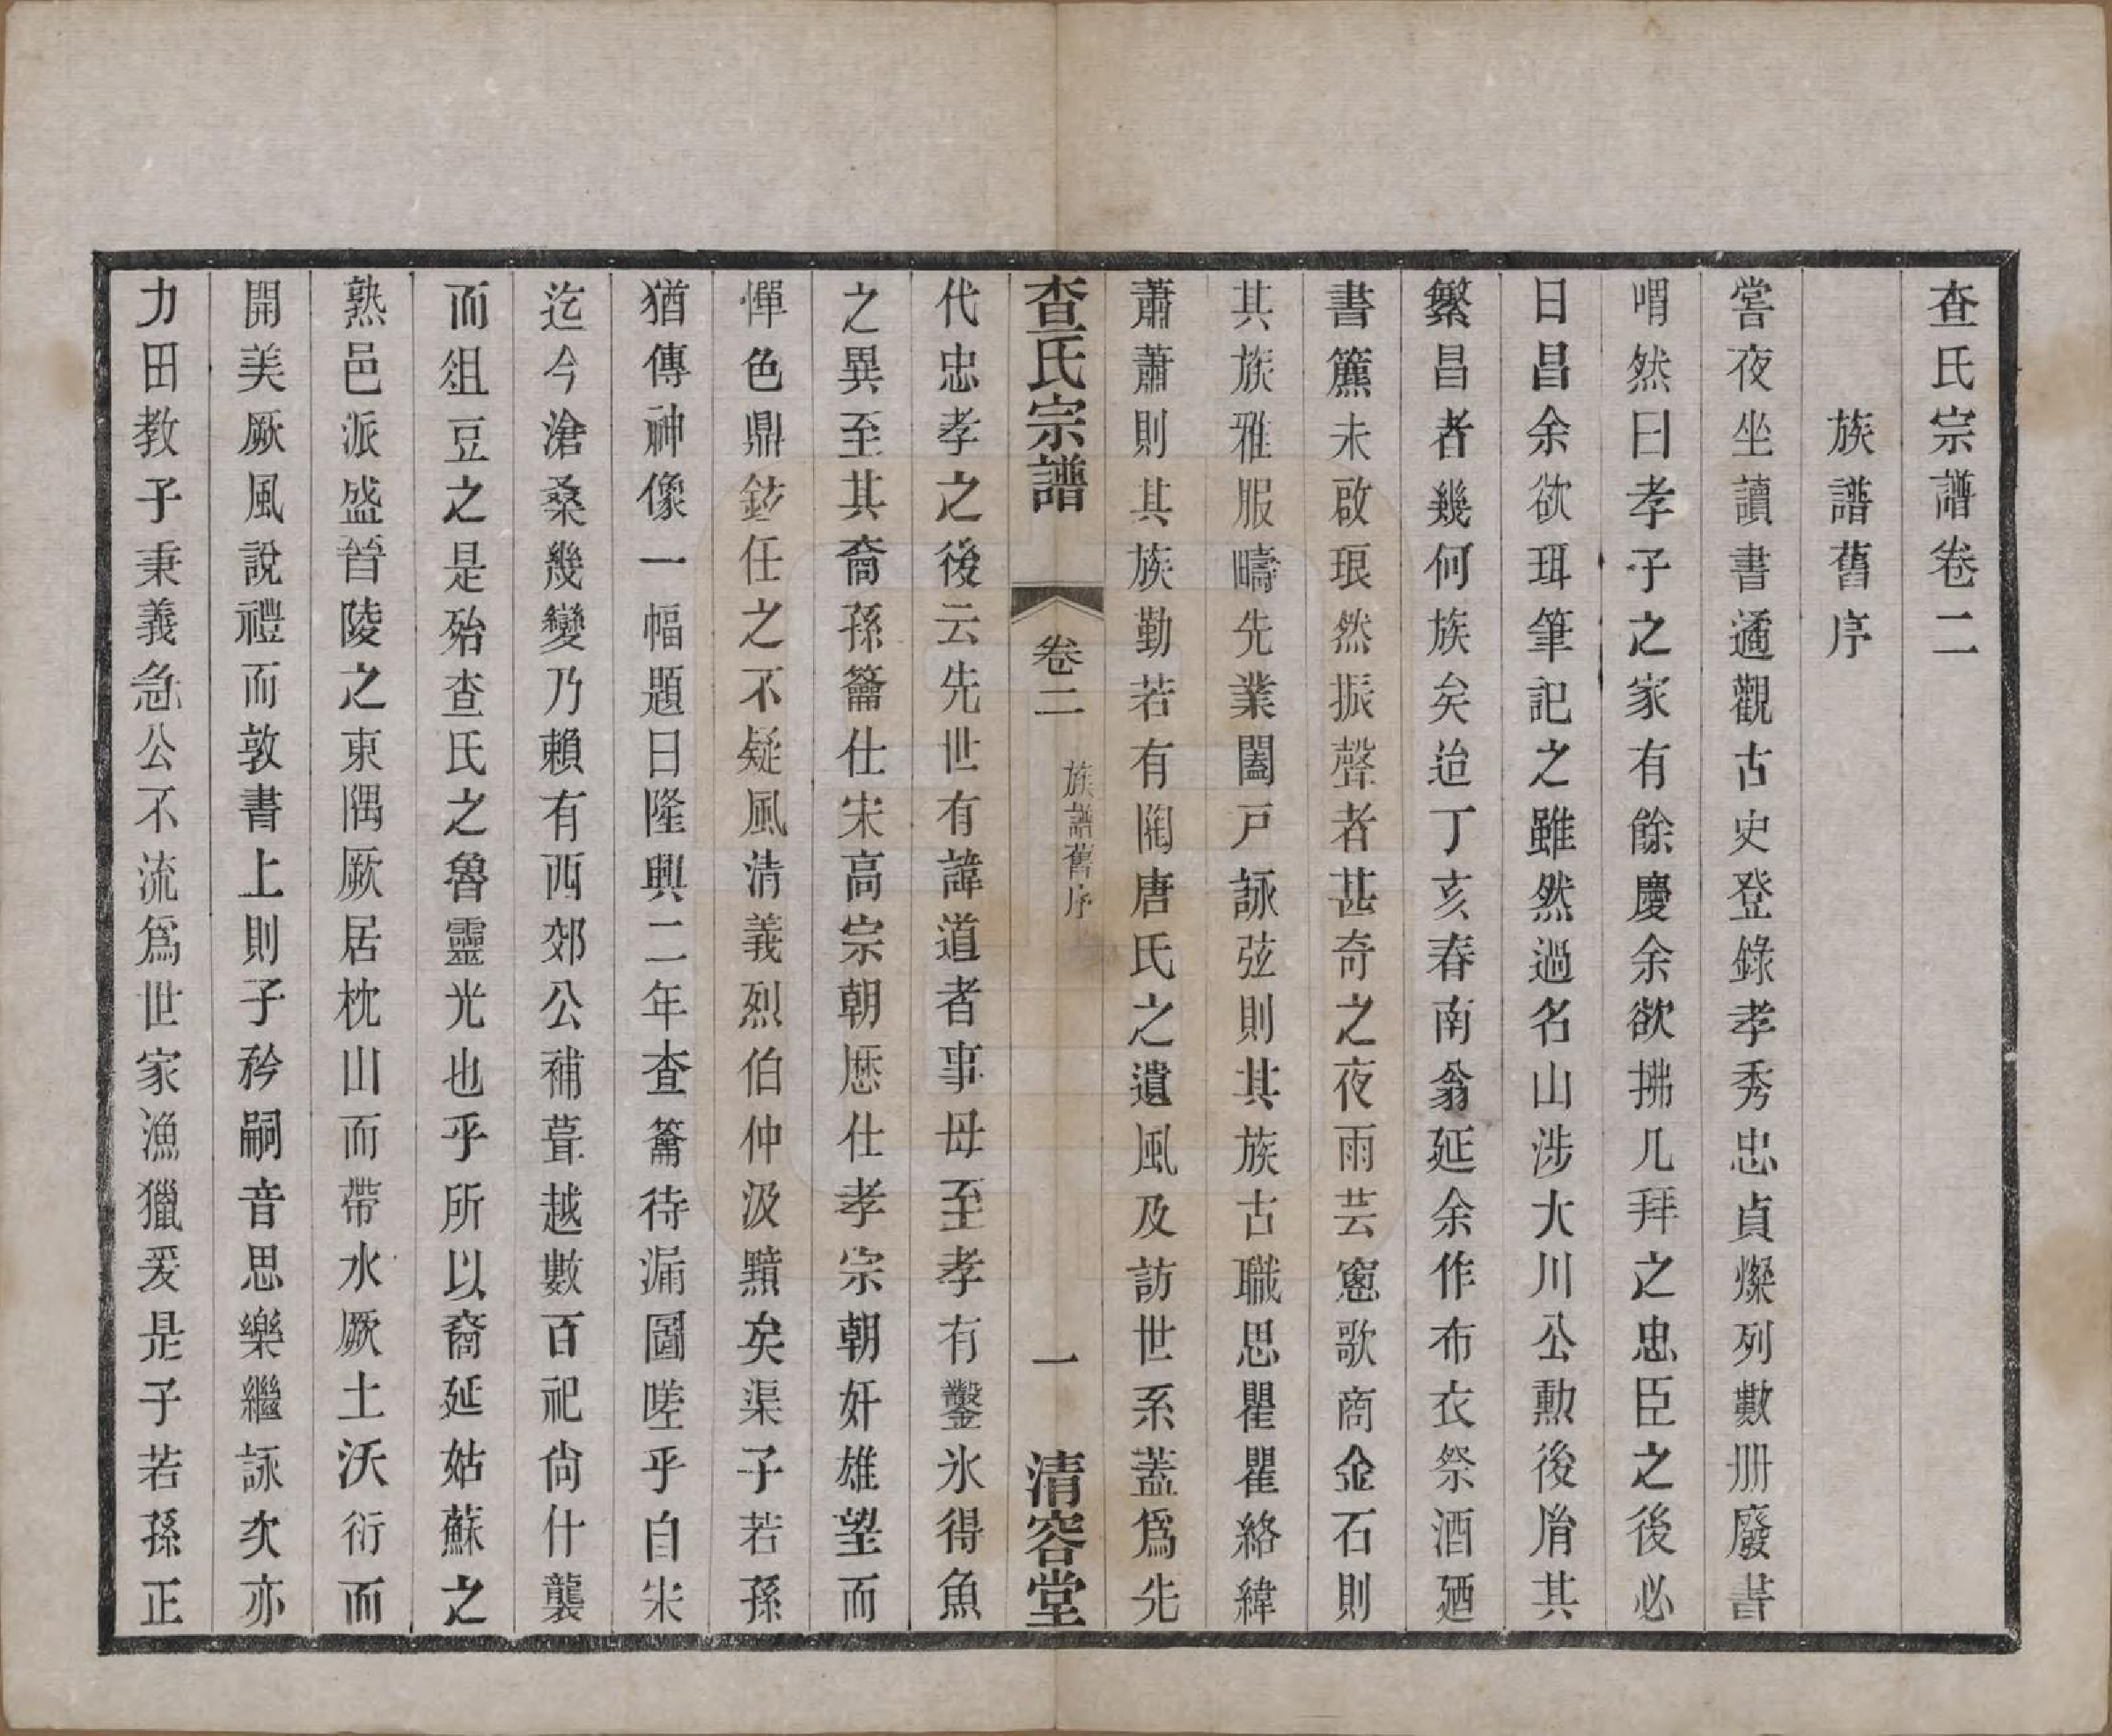 查氏宗譜卷二
族譜舊序
嘗夜坐讀書遹觀古史登錄孝秀忠貞燦列數册廢書
喟然曰孝子之家有餘慶余欲拂几拜之忠臣之後必
日昌余欲珥筆記之雖然過名山涉大川公勳後胤其
繁昌者幾何族矣迨丁亥春南翁延余作布衣祭酒廼
書簏未啟琅然振聲者甚奇之夜雨芸窻歌商金石則
其族雅服疇先業闔戸詠弦則其族古職思瞿瞿絡緯
蕭蕭則其族勤若有陶唐氏之遺風及訪世系蓋爲先
查氏宗譜
卷二
族譜舊序
一
清容堂
代忠孝之後云先世有諱道者事母至孝有鑿氷得魚
之異至其裔孫籥仕宋高宗朝歷仕孝宗朝奸雄望而
憚色鼎鉉任之不疑風清義烈伯仲汲黯矣渠子若孫
猶傳神像一幅題曰隆興二年查籥待漏圖嗟乎自宋
迄今滄桑幾變乃賴有西郊公補葺越數百祀尙什襲
而俎豆之是殆查氏之魯靈光也乎所以裔延姑蘇之
熟邑派盛晉陵之東隅厥居枕山而帶水厥土沃衍而
開美厥風說禮而敦書上則子矜嗣音思樂繼詠次亦
力田教子秉義急公不流爲世家漁獵爰是子若孫正